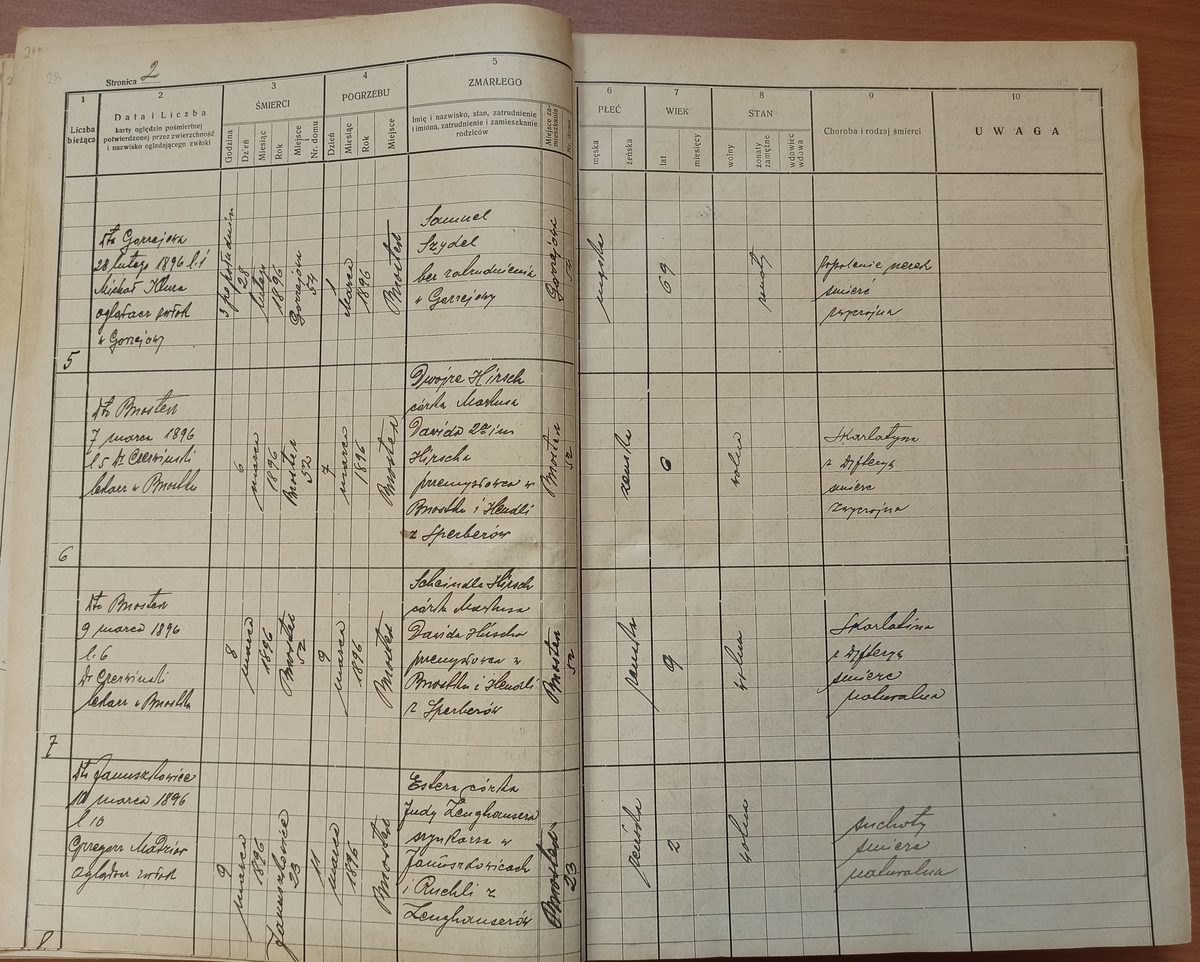 Stronica 2
1
Liczba
bieżąca
2
Data i Liczba
karty oględzin pośmiertnej
potwierdzonej przez zwierzchność
i nazwisko oglądającego zwłoki
3
ŚMIERCI
Godzina
Dzień
Miesiąc
Rok
Miejsce
Nr. domu
4
POGRZEBU
Dzień
Miesiąc
Rok
Miejsce
5
ZMARŁEGO
Imię i nazwisko, stan, zatrudnienie
i imiona, zatrudnienie i zamieszkanie
rodziców
Miejsce za-
mieszkania
Nr. domu
6
PŁEĆ
męska
żeńska
7
WIEK
lat
miesięcy
8
STAN
wolny
żonaty
zamężne
wdowiec
wdowa
9
Choroba i rodzaj śmierci
10
UWAGA
5
Dtto Gorzejowa
28 lutego 1896 l. 1
Michał
oglądacz zwłok
w Gorzejowy
3 popołudniu
28
lutego
1896
Gorzejowa
54
1
Marca
1896
Brzostek
Samuel
Szydel
bez zatrudnienia
w Gorzejowy
Gorzejowa
54
męska
69
żonaty
śmierć
zwyczajna
6
Dtto Brzostek
7 marca 1896
l 5 Dr Czerwinski
lekarz w Brzostku
6
marca
1896
Brzostek
52
7
marca
1896
Brzostek
Dwojre Hirsch
córka Markusa
Davida 2ga im
Hirscha
przemysłowca w
Brzostku i Hendli
z Sperberów
Brzostek
52
zenska
6
wolna
Skarlatyna
z Dyfteryą
smierc
zwyczajna
7
Dtto Brzostek
9 marca 1896
l. 6
Dr Czerwinski
lekarz w Brzostku
8
marca
1896
Brzostek
52
9
marca
1896
Brzostek
Scheindla Hirsch
córka Markusa
Davida Hirscha
przemysłowca w
Brzostku i Hendli
z Sperberów
Brzostek
52
zenska
9
wolna
Skarlatina
z Dyfteryą
smierc
naturalna
8.
Dtto Januszkowice
10 marca 1896
l 10
Grzegorz Madziar
oglądacz zwłok
9
marca
1896
Januszkowice
23
11
marca
1896
Brzostek
Estera córka
Judy Lenghausera
szynkarza w
Januszkowicach
i Ruchli z
Lenghauserów
Brzostek
23
żeńska
2
wolna
suchoty
smierc
naturalna